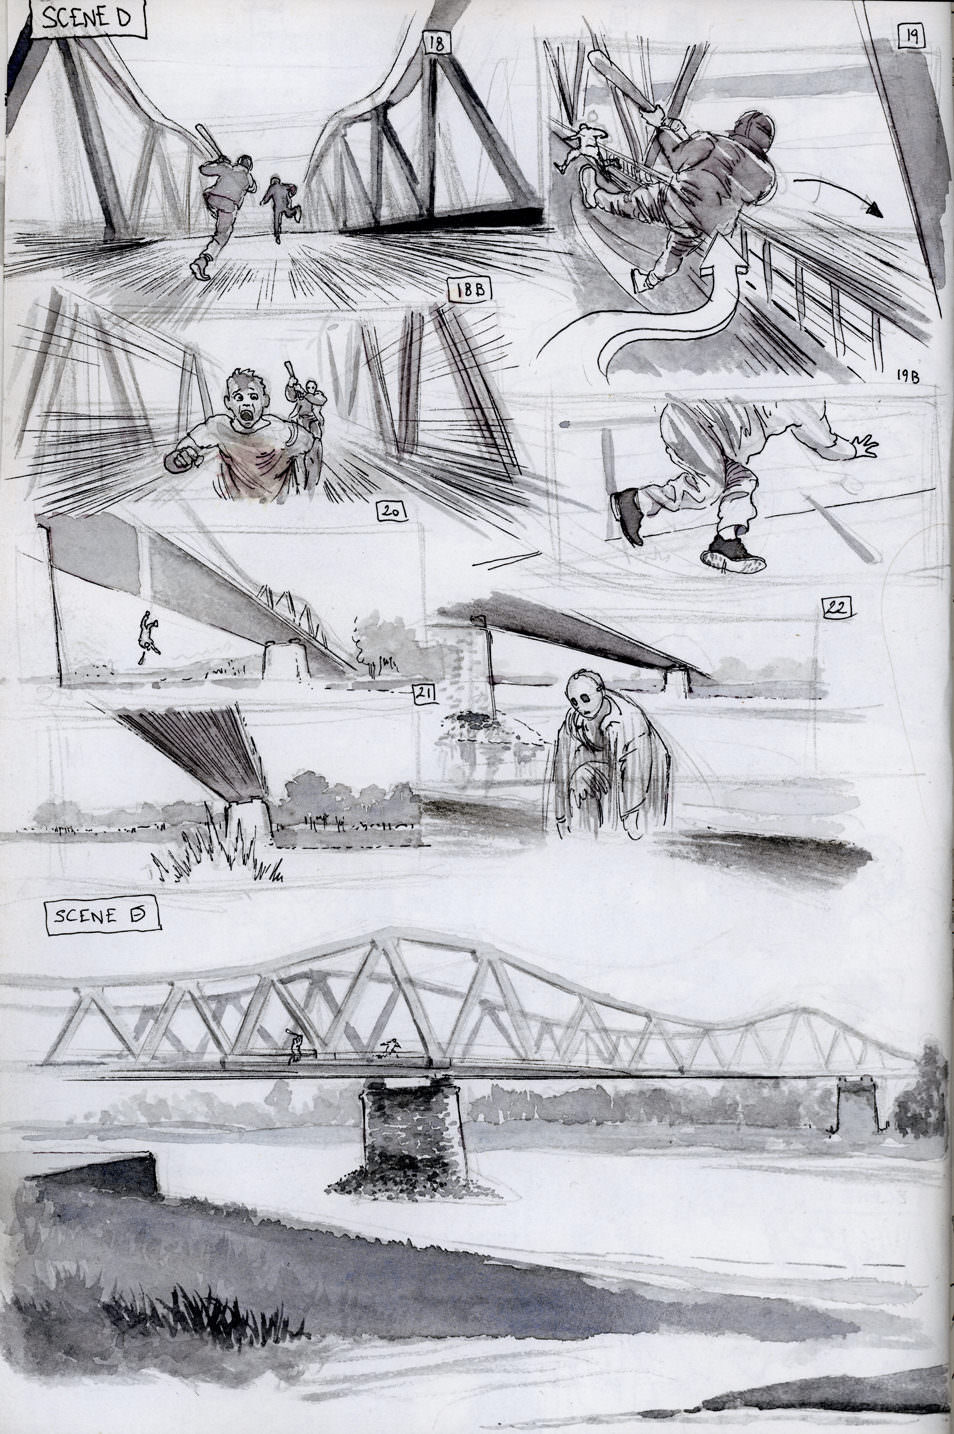 SCENE D
18
19
18B
19B
20
22
21
SCENE E